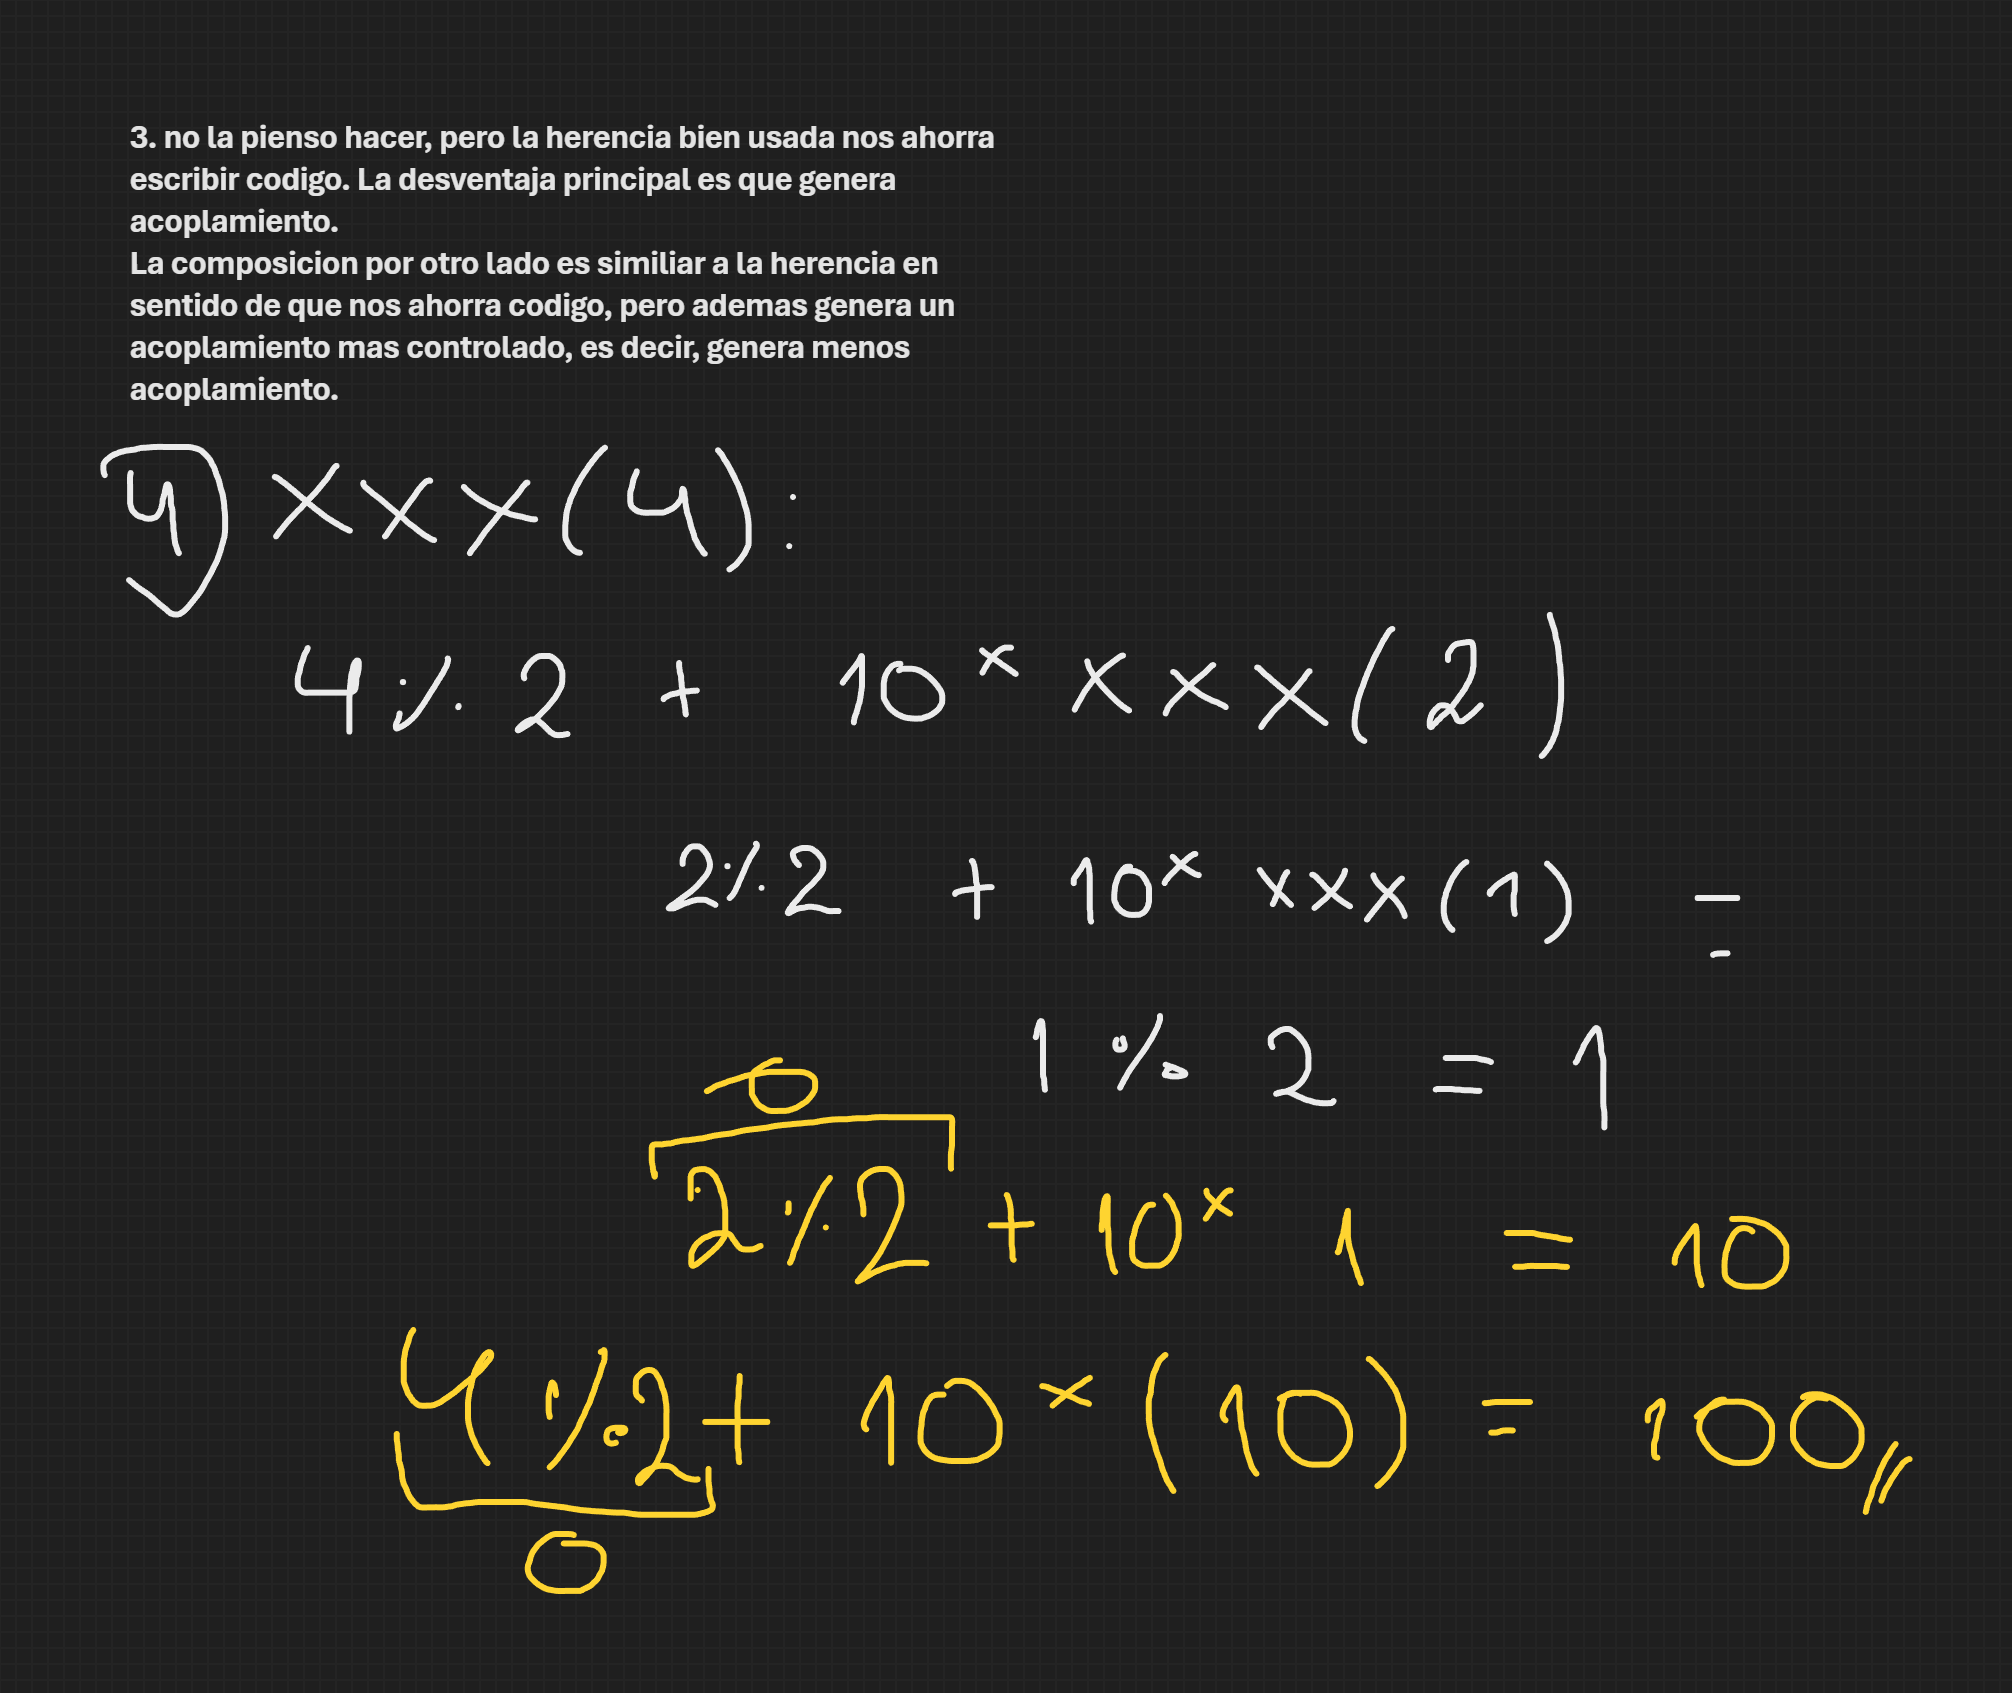 3. no la pienso hacer, pero la herencia bien usada nos ahorra
escribir codigo. La desventaja principal es que genera
acoplamiento.
La composicion por otro lado es similiar a la herencia en
sentido de que nos ahorra codigo, pero ademas genera un
acoplamiento mas controlado, es decir, genera menos
acoplamiento.
4) xxx(4):
4 % 2 + 10 x xxx(2)
2 % 2 + 10 x xxx(1) =
1 % 2 = 1
0
2 % 2 + 10 x 1 = 10
4 % 2 + 10 x (10) = 100//
0